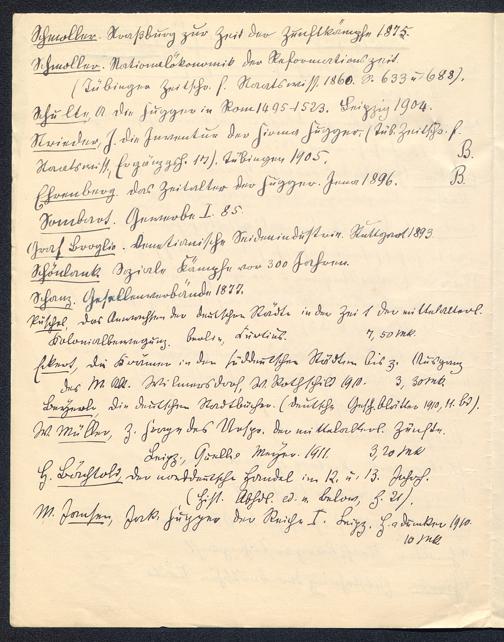 Schmoller. Straßburg zur Zeit der Zunftkämpfe 1875.
Schmoller. Nationalökonomik der Reformationszeit.
(Tübinger Zeitschr. f. Staatswiss. 1860. S. 633 u 688).
Schulte, A die Fugger in Rom 1495-1523. Leipzig 1904.
Strieder, J. die Inventur der Firma Fugger. (Tüb. Zeitschr. f.
Staatswiss, Ergänzgsh. 17). Tübingen 1905. B.
Ehrenberg. das Zeitalter der Fugger. Jena 1896. B.
Sombart. Gewerbe I. 85
Graf Broglio. Venetianische Seidenindustrie. Stuttgart 1893
Schönlank Soziale Kämpfe vor 300 Jahren.
Schanz. Gesellenverbände 1877.
Püschel, Das Anwachsen der deutschen Städte in der Zeit der mittelalterl.
Kolonialbewegung. Berlin, Curtius. 7,50 Mk.
Eckert, die Krämer in den süddeutschen Städten bis z. Ausgang
des M. Alt. Wilmersdorf, Dr Rothschild 1910. 3,30 Mk
Beyerle, die deutschen Stadtbücher. (Deutsche Gesch. blätter 1910,
W. Müller, z. Frage des Urspr. der mittelalterl. Zünfte.
Leipz., Quelle Meyer. 1911 3,20 Mk
H. Bächtold, der norddeutsche Handel im 12. u. 13. Jahrh.
(Hist. Abhdl. ed. v. Below, H. 21).
M. Jansen, Jak. Fugger der Reiche I. Leipz. Duncker 1910.
10 Mk